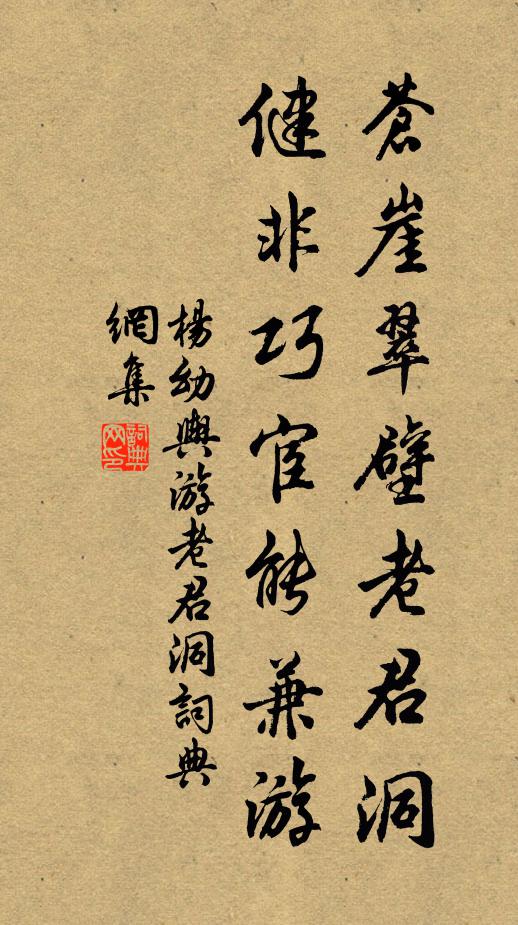 蒼崖翠壁老君洞
健非巧宦能兼游
楊幼輿游老君洞詞典
網集
詞典
网印